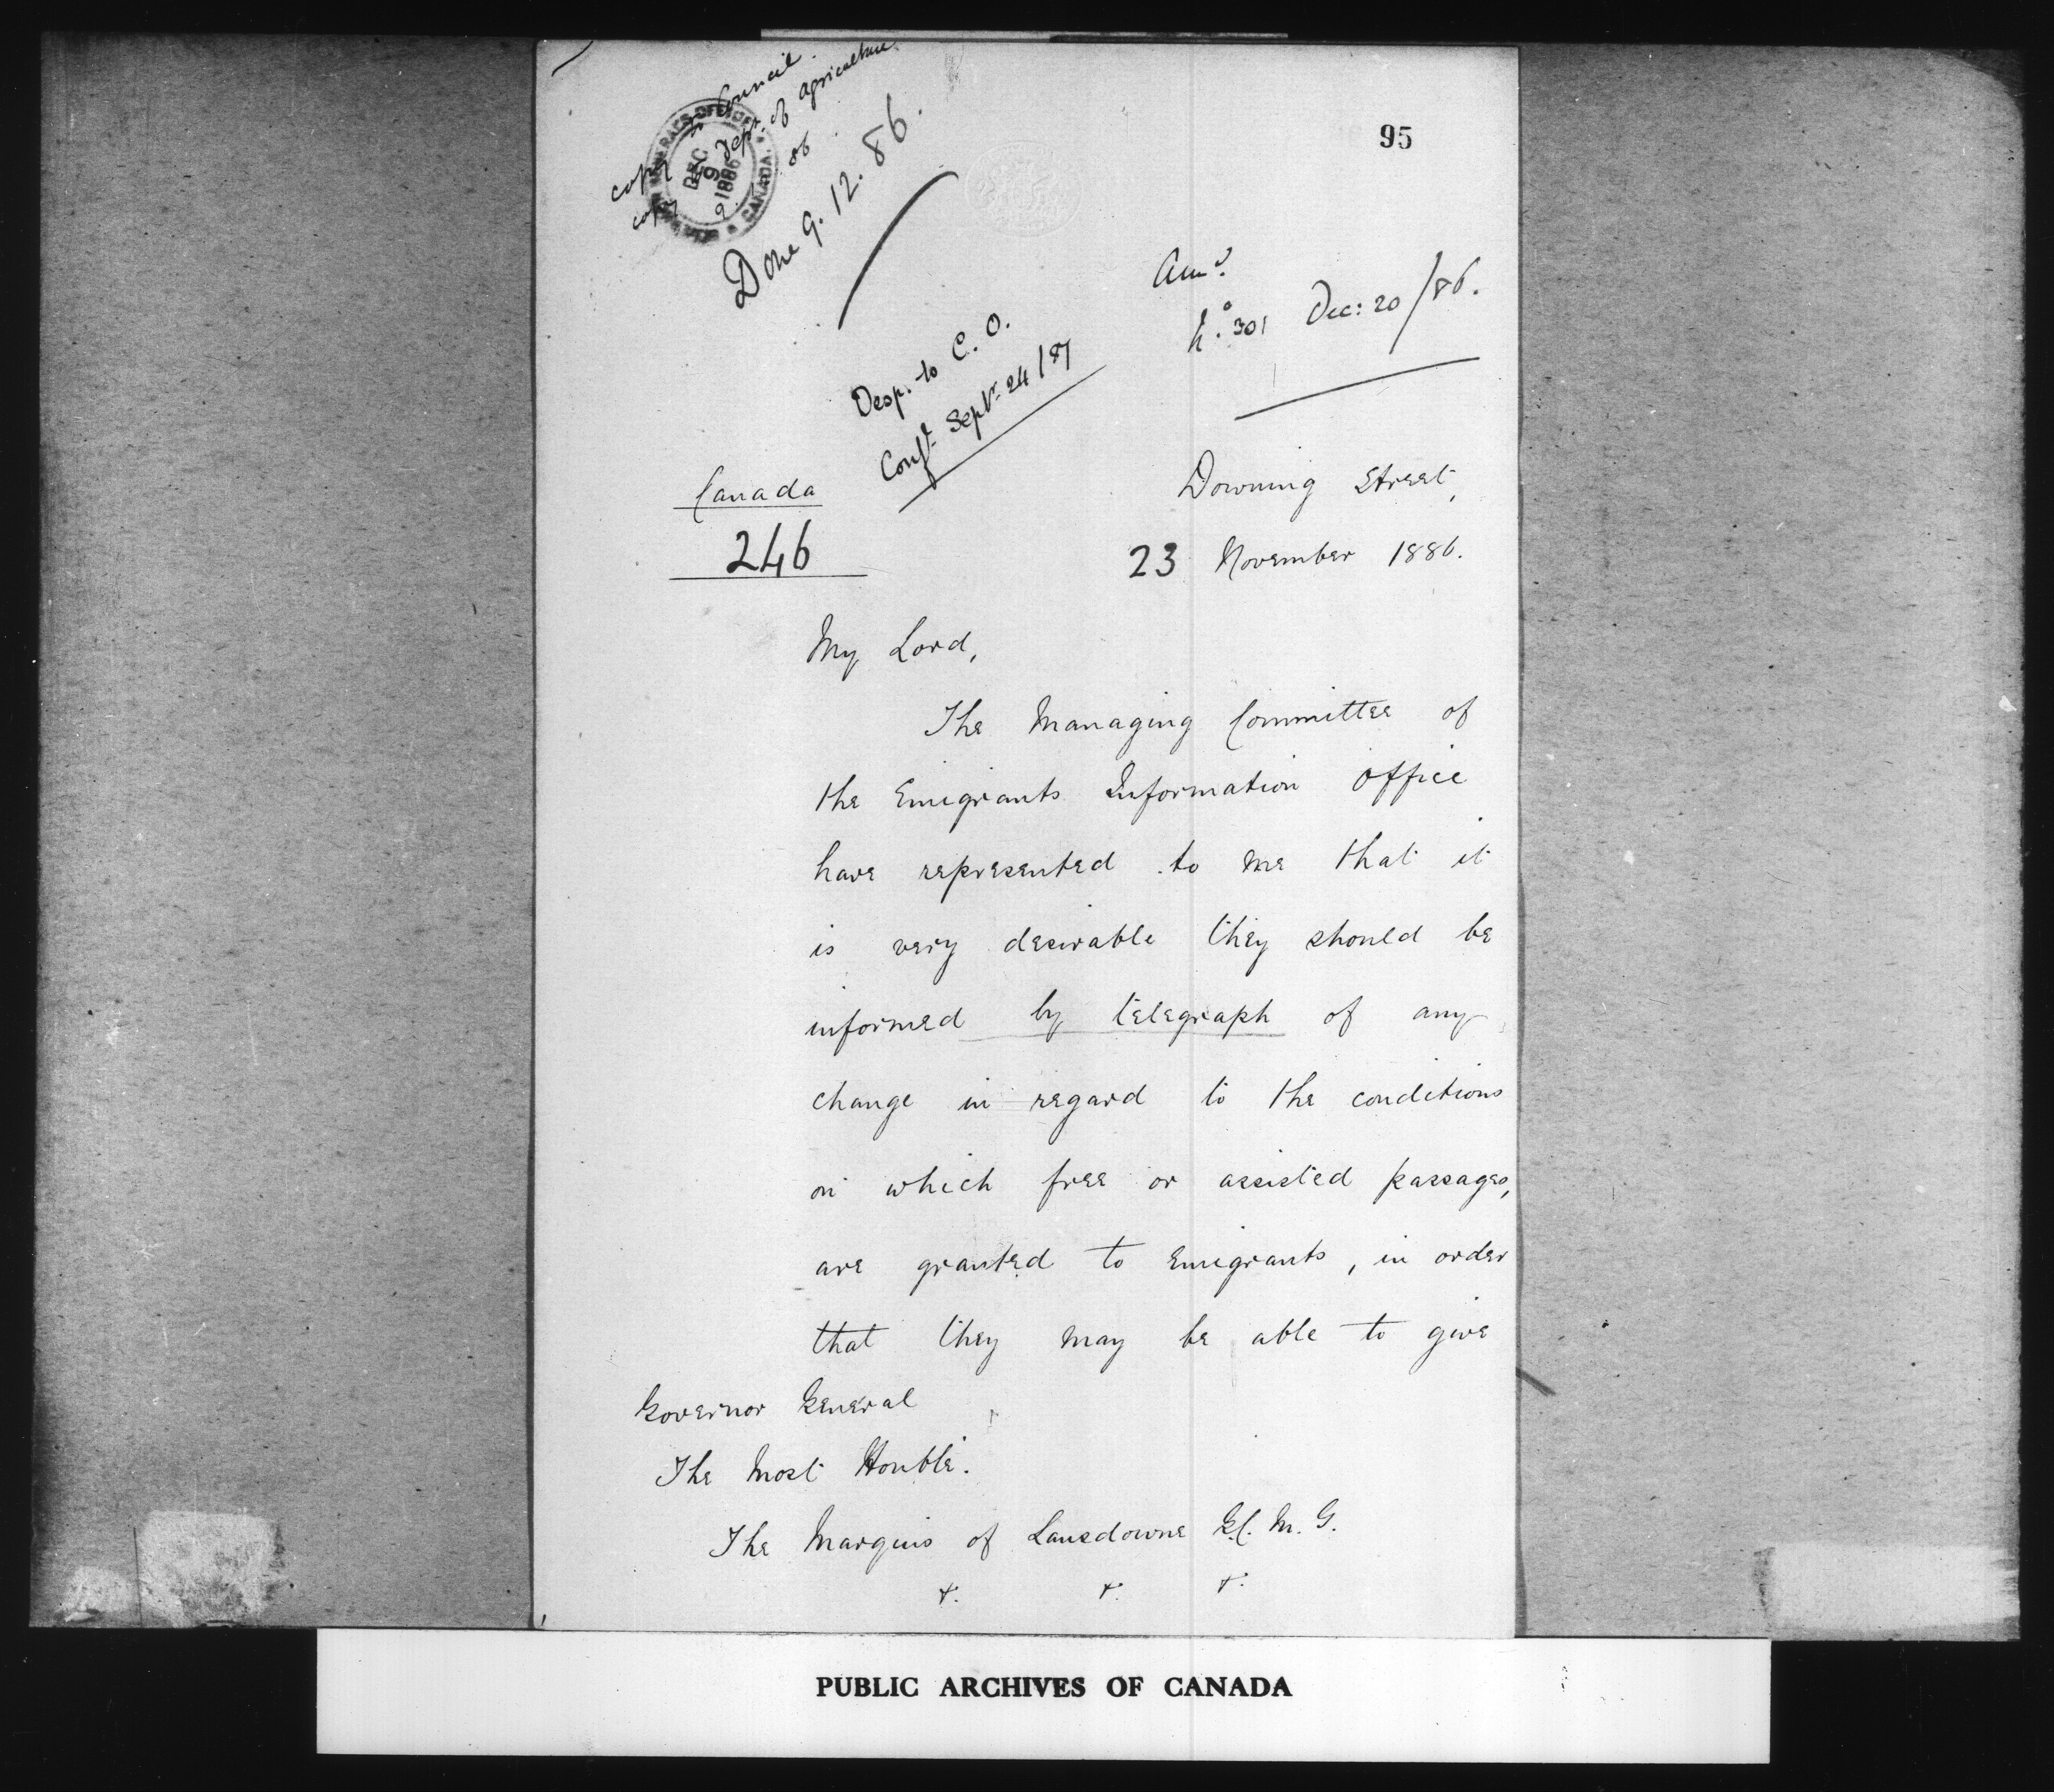 95
copy to Council.
copy Dept. of Agriculture
GOVERNOR GENERAL'S OFFICE
CANADA.
DEC
9
1886
Done 9. 12. 86.
Ansd.
No. 301 Dec: 20/86.
Desp. to C. O.
Confl. Septr. 24/87
Canada
246
Downing Street,
23 November 1886.
My Lord,
The Managing Committee of
the Emigrants Information Office
have represented to me that it
is very desirable they should be
informed by telegraph of any
change in regard to the conditions
on which free or assisted passages,
are granted to Emigrants, in order
that they may be able to give
Governor General
The Most Honble.
The Marquis of Lansdowne G.C.M.G.
&. &. &.
PUBLIC ARCHIVES OF CANADA